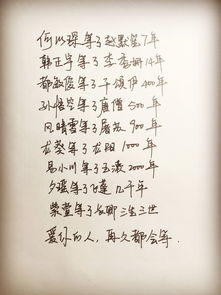 何以琛等了赵默笙7年
韩正宇等了李秀娜14年
都敏俊等了千颂伊400年
孙悟空等了唐僧500年
风晴雪等了屠苏900年
龙葵等了龙阳1000年
易小川等了玉漱2000年
夕瑶等了飞蓬几千年
紫萱等了长卿三生三世
爱你的人，再久都会等.